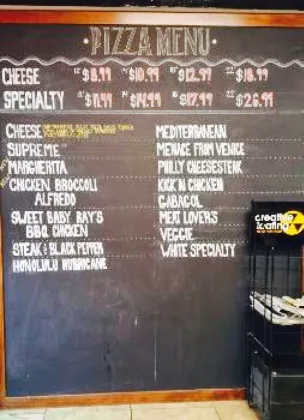 PIZZA MENU
CHEESE $8.99 $10.99 $12.99 $18.99
SPECIALTY $11.99 $14.99 $17.99 $26.99
CHEESE
SUPREME
MARGHERITA
CHICKEN BROCCOLI
ALFREDO
SWEET BABY RAY'S
BBQ CHICKEN
STEAK & BLACK PEPPER
HONOLULU HURRICANE
MEDITERRANEAN
MENACE FROM VENICE
PHILLY CHEESESTEAK
KICK'N CHICKEN
GABAGOL
MEAT LOVERS
VEGGIE
WHITE SPECIALTY
creative
loafing